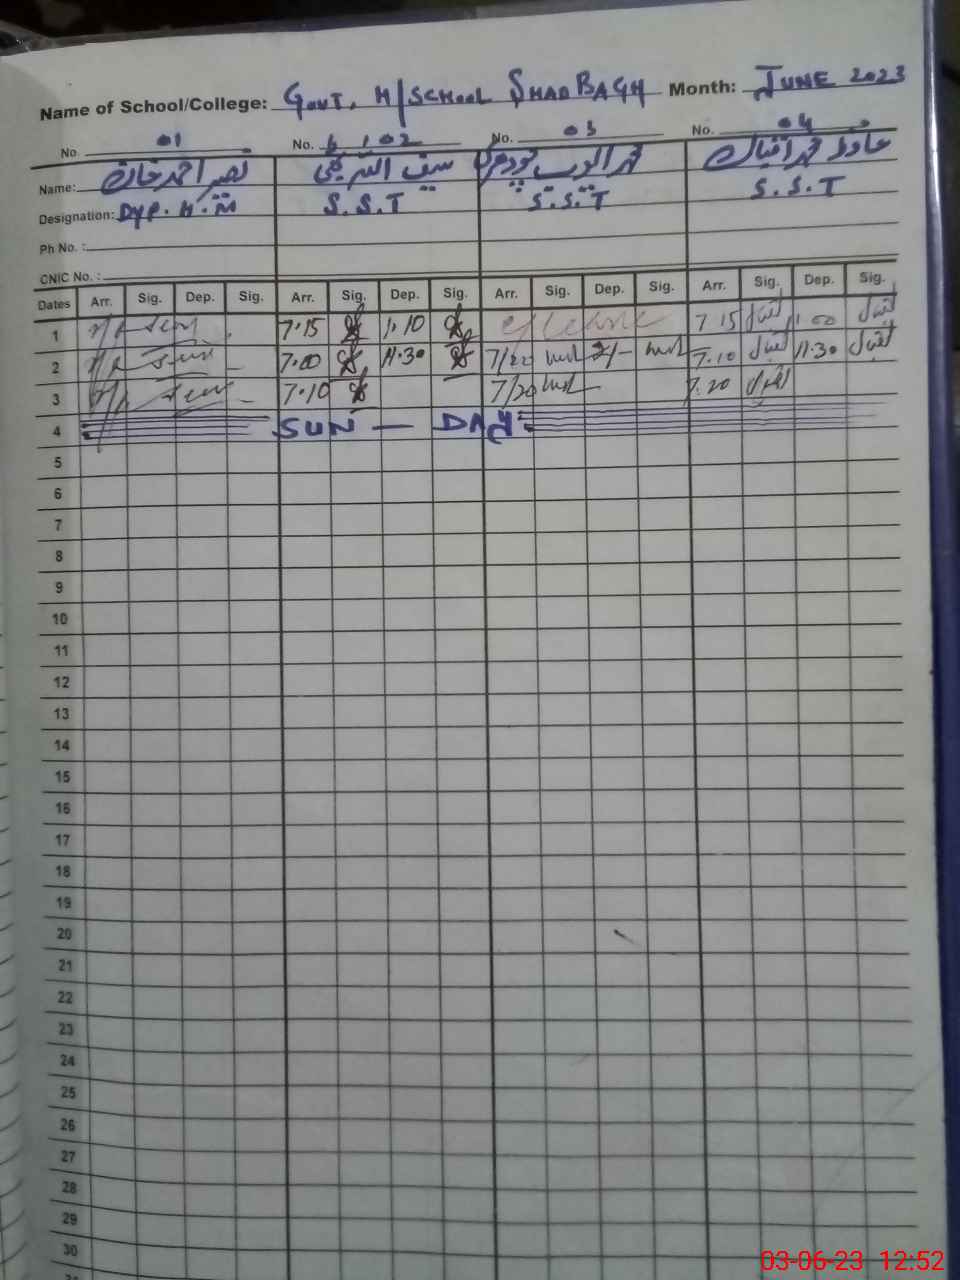 Name of School/College: GOVT. H/SCHOOL SHADBAGH Month: JUNE 2023
No. 01 No. 02 No. 03 No. 04
Name: نصیر احمد خان محمد ایوب حافظ محمد اقبال
Designation: Dyp. H.M S.S.T S.S.T S.S.T
Ph No. :
CNIC No. :
Dates Arr. Sig. Dep. Sig. Arr. Sig. Dep. Sig. Arr. Sig. Dep. Sig. Arr. Sig. Dep. Sig.
1 7.15 1.10 c/leave 7 15 اقبال 1.00 اقبال
2 7.00 11.30 7/20 7.10 اقبال 11.30 اقبال
3 7.10 7/20 7.20 اقبال
4 SUN — DAY
5
6
7
8
9
10
11
12
13
14
15
16
17
18
19
20
21
22
23
24
25
26
27
28
29
30
03-06-23 12:52